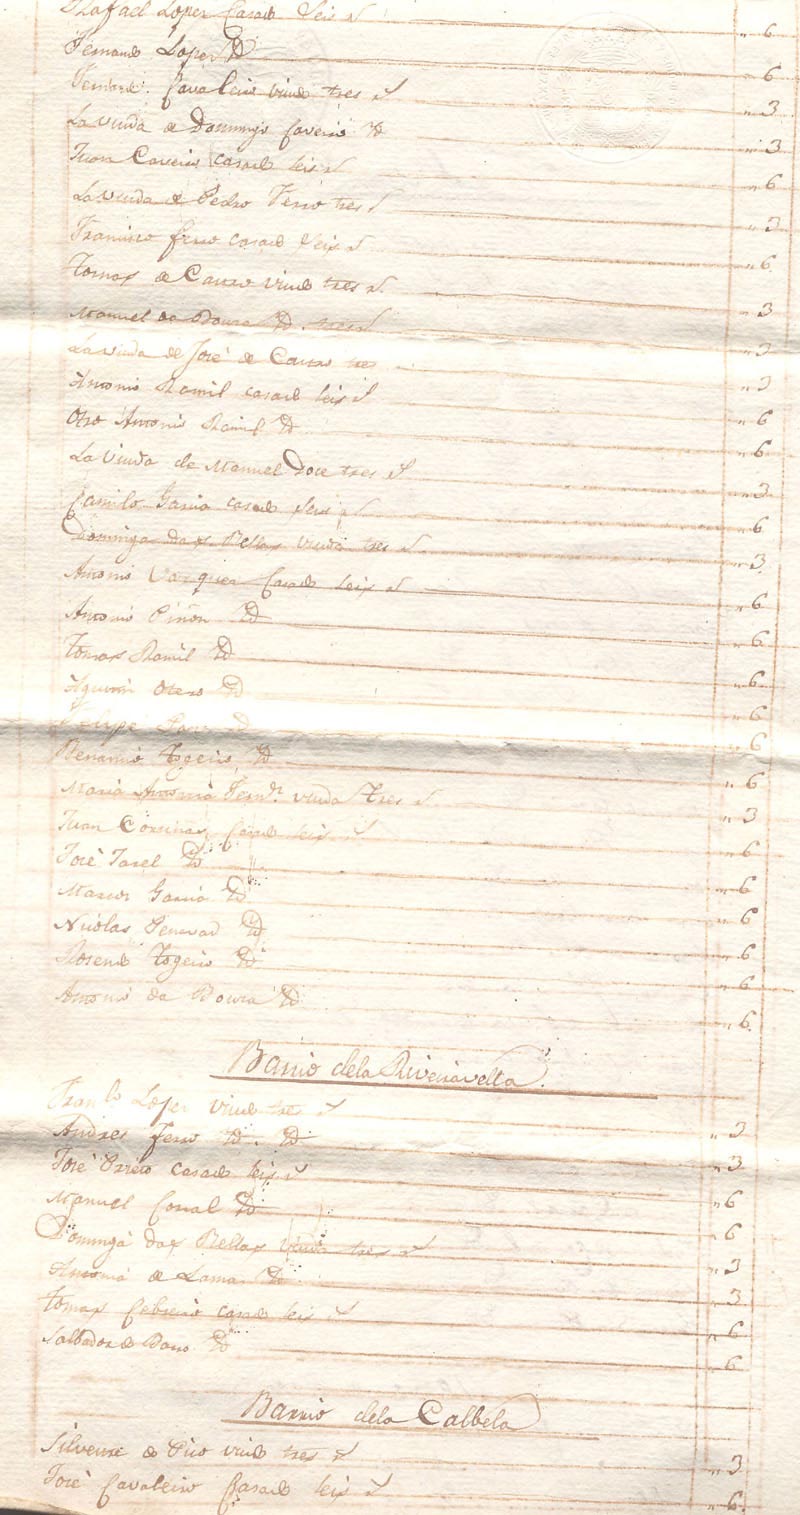 Rafael Lopez Casado seis rs „ 6
Fernando Lopez Yd „ 6
Fernando Cavaleiro viudo tres rs „ 3
La viuda de Domingo Caveiro Yd „ 3
Juan Caveiro casado seis rs „ 6
La viuda de Pedro Ferro tres rs „ 3
Francisco ferro casado seis rs „ 6
Tomas de Castro viudo tres rs „ 3
Manuel da Boura Yd tres rs „ 3
La viuda de José de Castro tres „ 3
Antonio Ramil casado seis rs „ 6
Otro Antonio Ramil Yd „ 6
La viuda de Manuel Doce tres rs „ 3
Camilo Garcia casado seis rs „ 6
Dominga das Pellas viuda tres rs „ 3
Antonio Vazquez Casado seis rs „ 6
Antonio Piñon Yd „ 6
Tomas Ramil Yd „ 6
Agustin Otero Yd „ 6
Felipe Yd „ 6
Benanio Togeiro Yd „ 6
Maria Antonia Fernz. viuda tres rs „ 3
Juan casado seis rs „ 6
José Yd „ 6
Marcos Garcia Yd „ 6
Nicolas Yd „ 6
Rosendo Togeiro Yd „ 6
Antonio da Boura Yd „ 6
Barrio dela Riveiravella
Franco Lopez viudo tres rs „ 3
Andres ferro Yd. Yd „ 3
José casado seis rs „ 6
Manuel Corral Yd „ 6
Dominga das Pellas viuda tres rs „ 3
Antonia de Lama Yd „ 3
Tomas febreiro casado seis rs „ 6
Salbador do Barro Yd „ 6
Barrio dela Calbela
Silvestre do Pico viudo tres rs „ 3
José Cavaleiro Casado seis rs „ 6